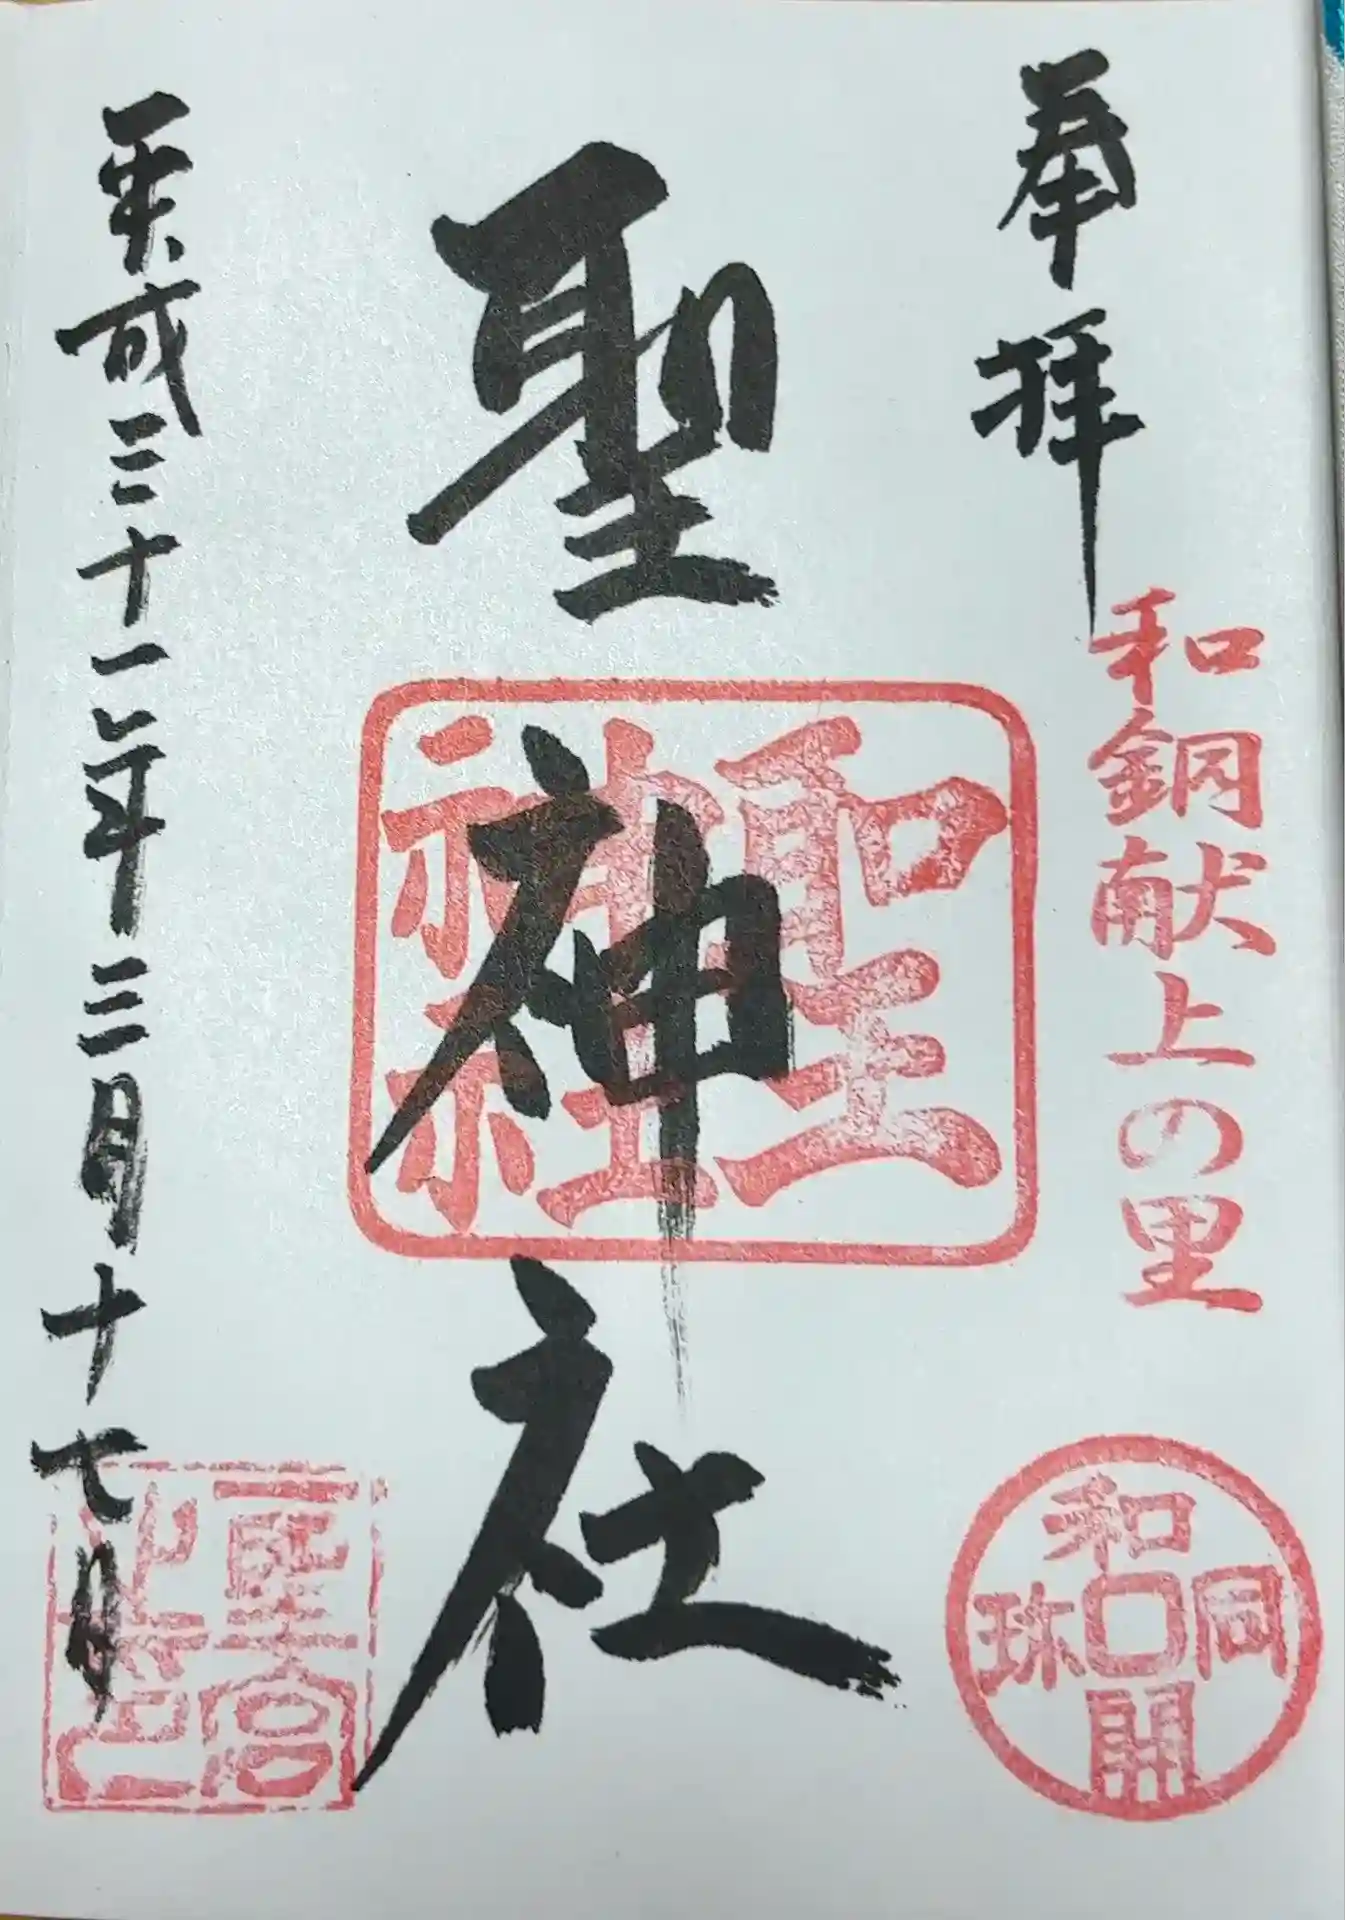 奉拝
和銅献上の里
和同開珎
聖神社
聖神社
平成三十一年三月十七日
聖宮之印